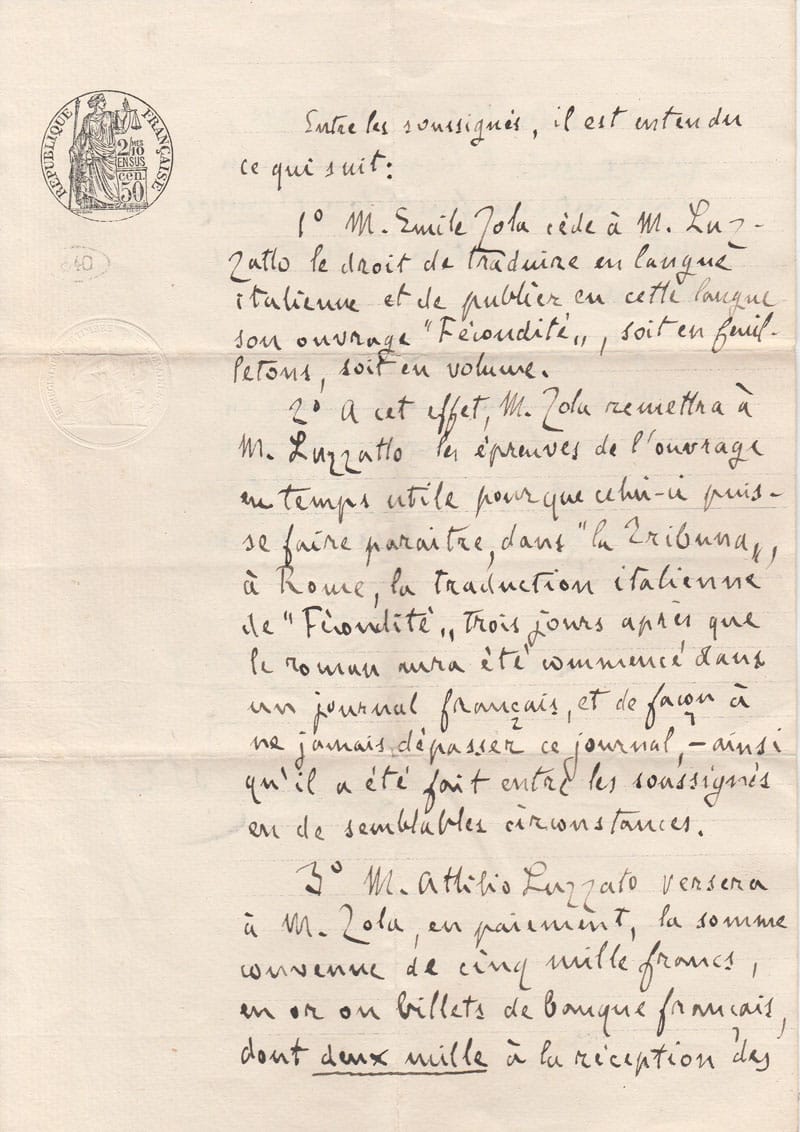 RÉPUBLIQUE FRANÇAISE
2/10
EN SUS
cen.
50
40
Entre les soussignés, il est entendu
ce qui suit:
1º M. Emile Zola cède à M. Luz-
zatto le droit de traduire en langue
italienne et de publier en cette langue
son ouvrage "Fécondité„, soit en feuil-
letons, soit en volume.
2º A cet effet, M. Zola remettra à
M. Luzzatto les épreuves de l'ouvrage
en temps utile pour que celui-ci puis-
se faire paraître, dans "la Tribuna„,
à Rome, la traduction italienne
de "Fécondité„ trois jours après que
le roman aura été commencé dans
un journal français, et de façon à
ne jamais dépasser ce journal, - ainsi
qu'il a été fait entre les soussignés
en de semblables circonstances.
3º M. Attilio Luzzato versera
à M. Zola, en paiement, la somme
convenue de cinq mille francs,
en or ou billets de banque français,
dont deux mille à la réception des